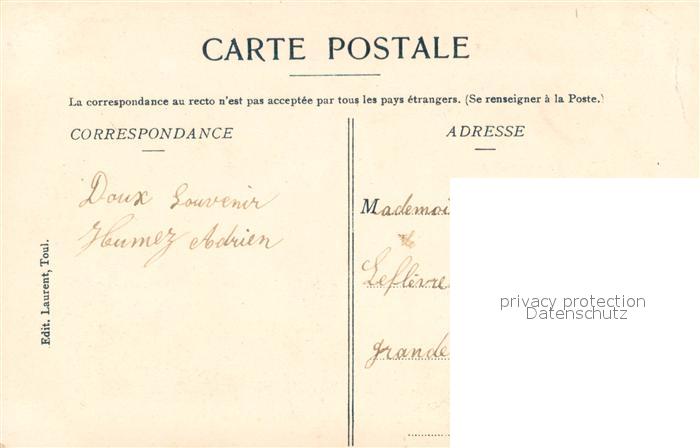 CARTE POSTALE
La correspondance au recto n'est pas acceptée par tous les pays étrangers. (Se renseigner à la Poste.)
CORRESPONDANCE
ADRESSE
Doux Souvenir
Humez Adrien
Mademoi
Leflèvre
grande
Edit. Laurent, Toul.
privacy protection
Datenschutz